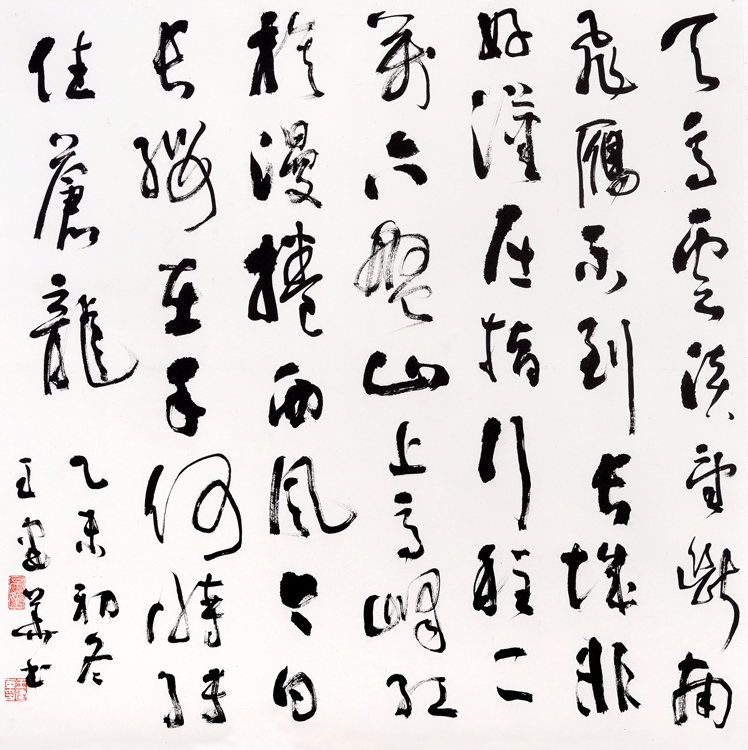 天高雲淡望斷南
飛鴈不到長城非
好漢屈指行程二
萬六盤山上高峰紅
旗漫捲西風今日
長纓在手何時縛
住蒼龍
乙未初冬
王華書